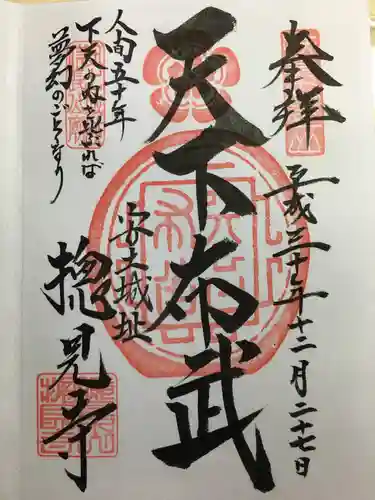 奉拝
平成三十年十二月二十七日
天下布武
安土城址
人間五十年
下天の内を比ぶれば
夢幻のごとくなり
摠見寺